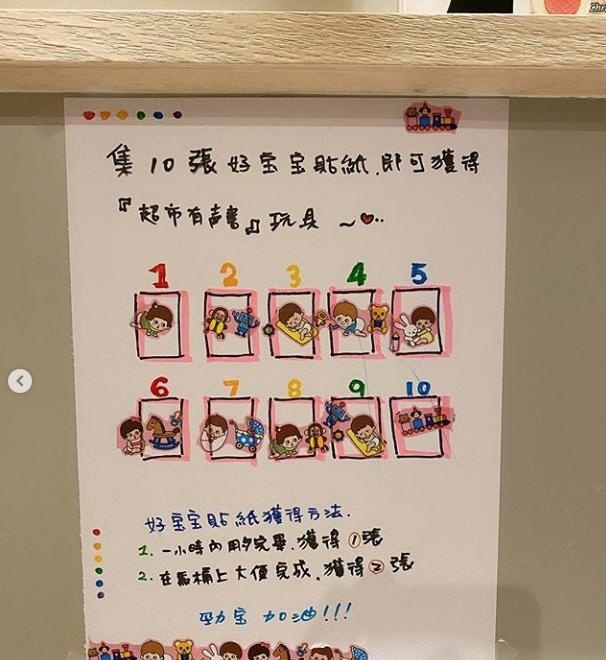 集10張好宝宝貼紙,即可獲得
『超市有声書』玩具~
1 2 3 4 5
6 7 8 9 10
好宝宝貼紙獲得方法.
1. 一小時內用夕完畢.獲得①張
2. 在馬桶上大便完成.獲得②張
勁宝 加油!!!